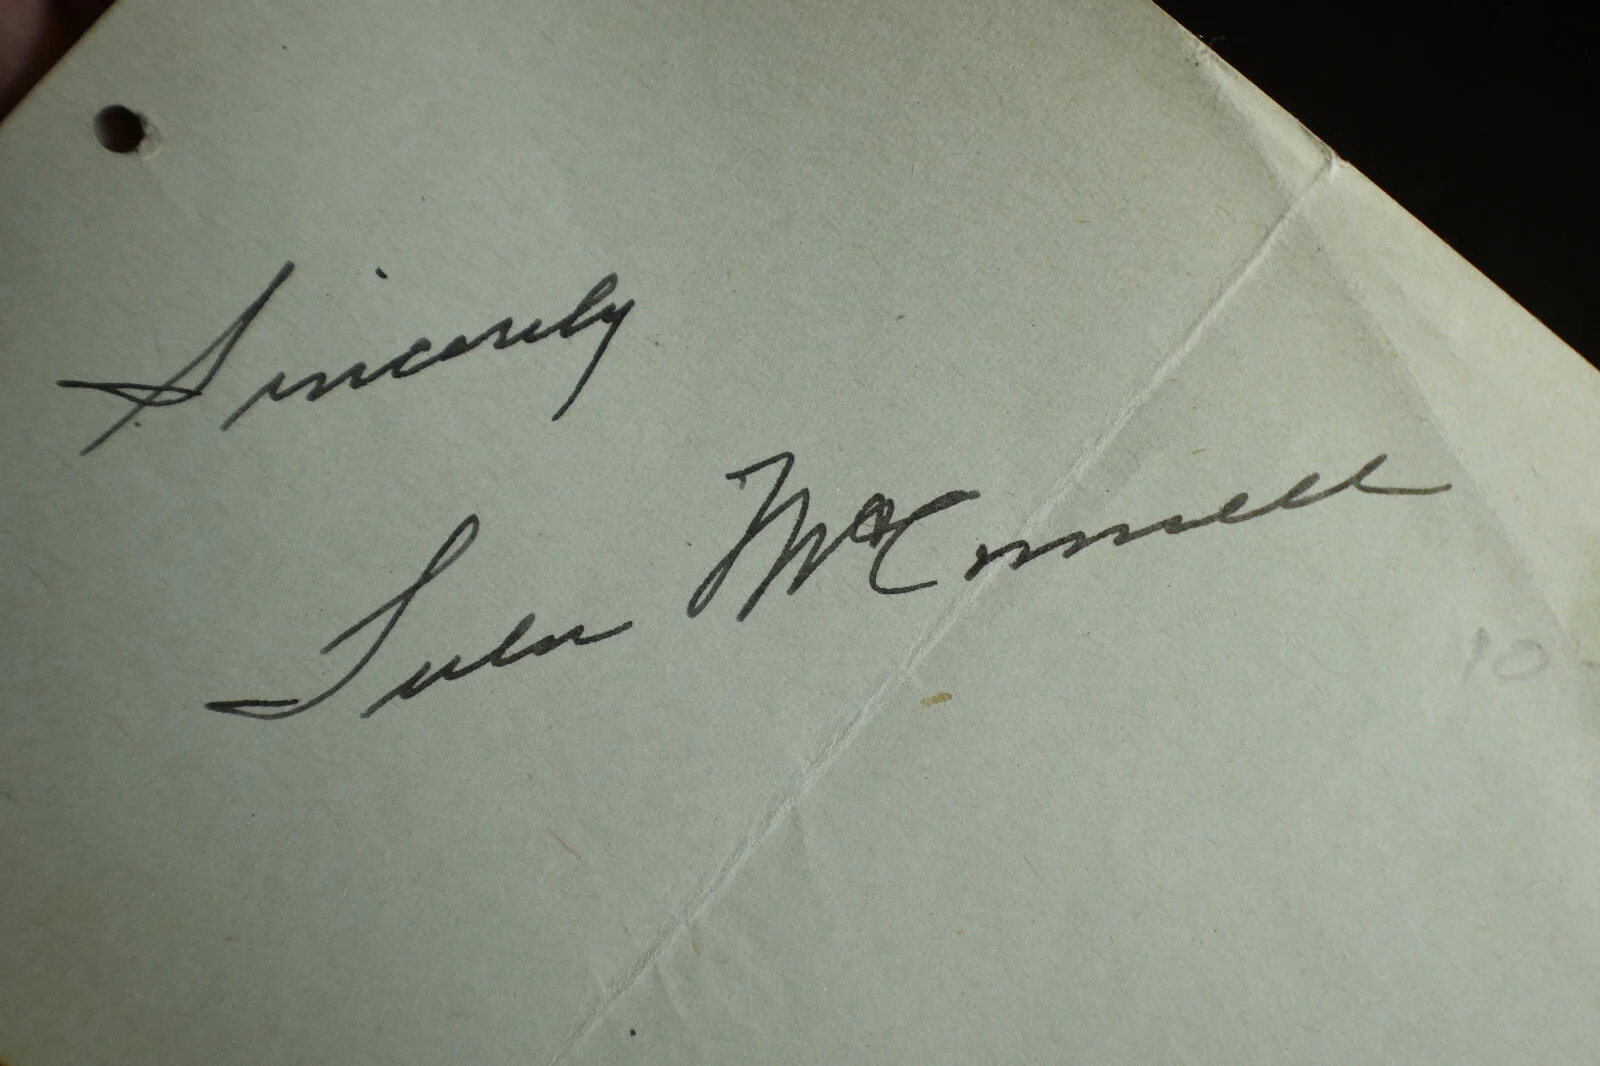 Sincerely
Lulu McConnell
10